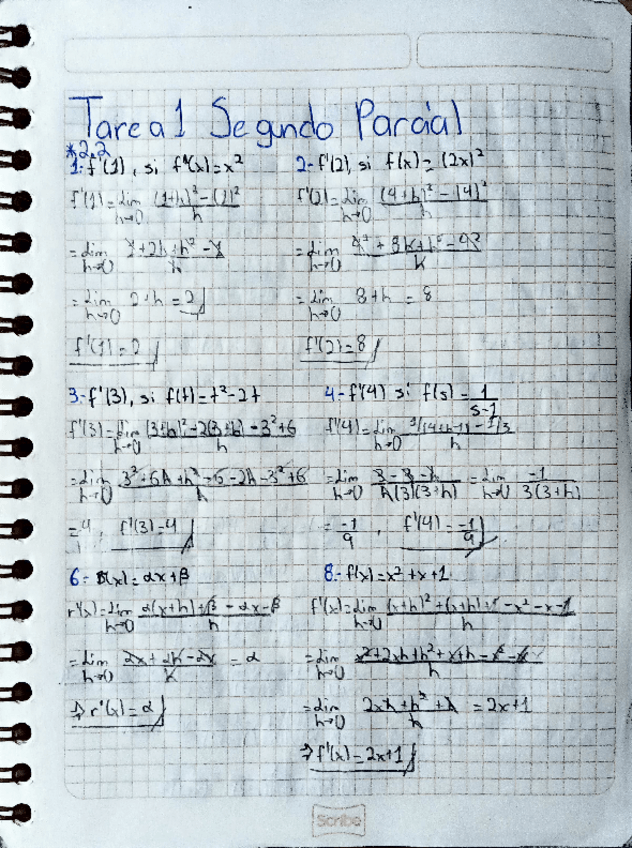 Tarea 1 Segundo Parcial
*2.2
1.- f'(1), si f'(x)=x²
f'(1)=lim h→0 ((1+h)²-(1)²)/h
=lim h→0 (1+2h+h²-1)/h
=lim h→0 2+h=2
f'(1)=2
2.- f'(2), si f(x)=(2x)²
f'(2)=lim h→0 ((4+h)²-(4)²)/h
=lim h→0 (4²+8h+h²-4²)/h
=lim h→0 8+h=8
f'(2)=8
3.- f'(3), si f(t)=t²-2t
f'(3)=lim h→0 ((3+h)²-2(3+h)-3²+6)/h
=lim h→0 (3²+6h+h²-6-2h-3²+6)/h
=4, f'(3)=4
4.- f'(4) si f(s)=1/(s-1)
f'(4)=lim h→0 (1/(4+h-1)-1/3)/h
=lim h→0 (3-3-h)/(h(3)(3+h))=lim h→0 -1/(3(3+h))
=-1/9, f'(4)=-1/9
6.- (x)=αx+β
r'(x)=lim h→0 (α(x+h)+β-αx-β)/h
=lim h→0 (αx+αh-αx)/h=α
⇒ r'(x)=α
8.- f(x)=x²+x+1
f'(x)=lim h→0 ((x+h)²+(x+h)+1-x²-x-1)/h
=lim h→0 (x²+2xh+h²+x+h-x²-x)/h
=lim h→0 (2xh+h²+h)/h=2x+1
⇒ f'(x)=2x+1
Scribe